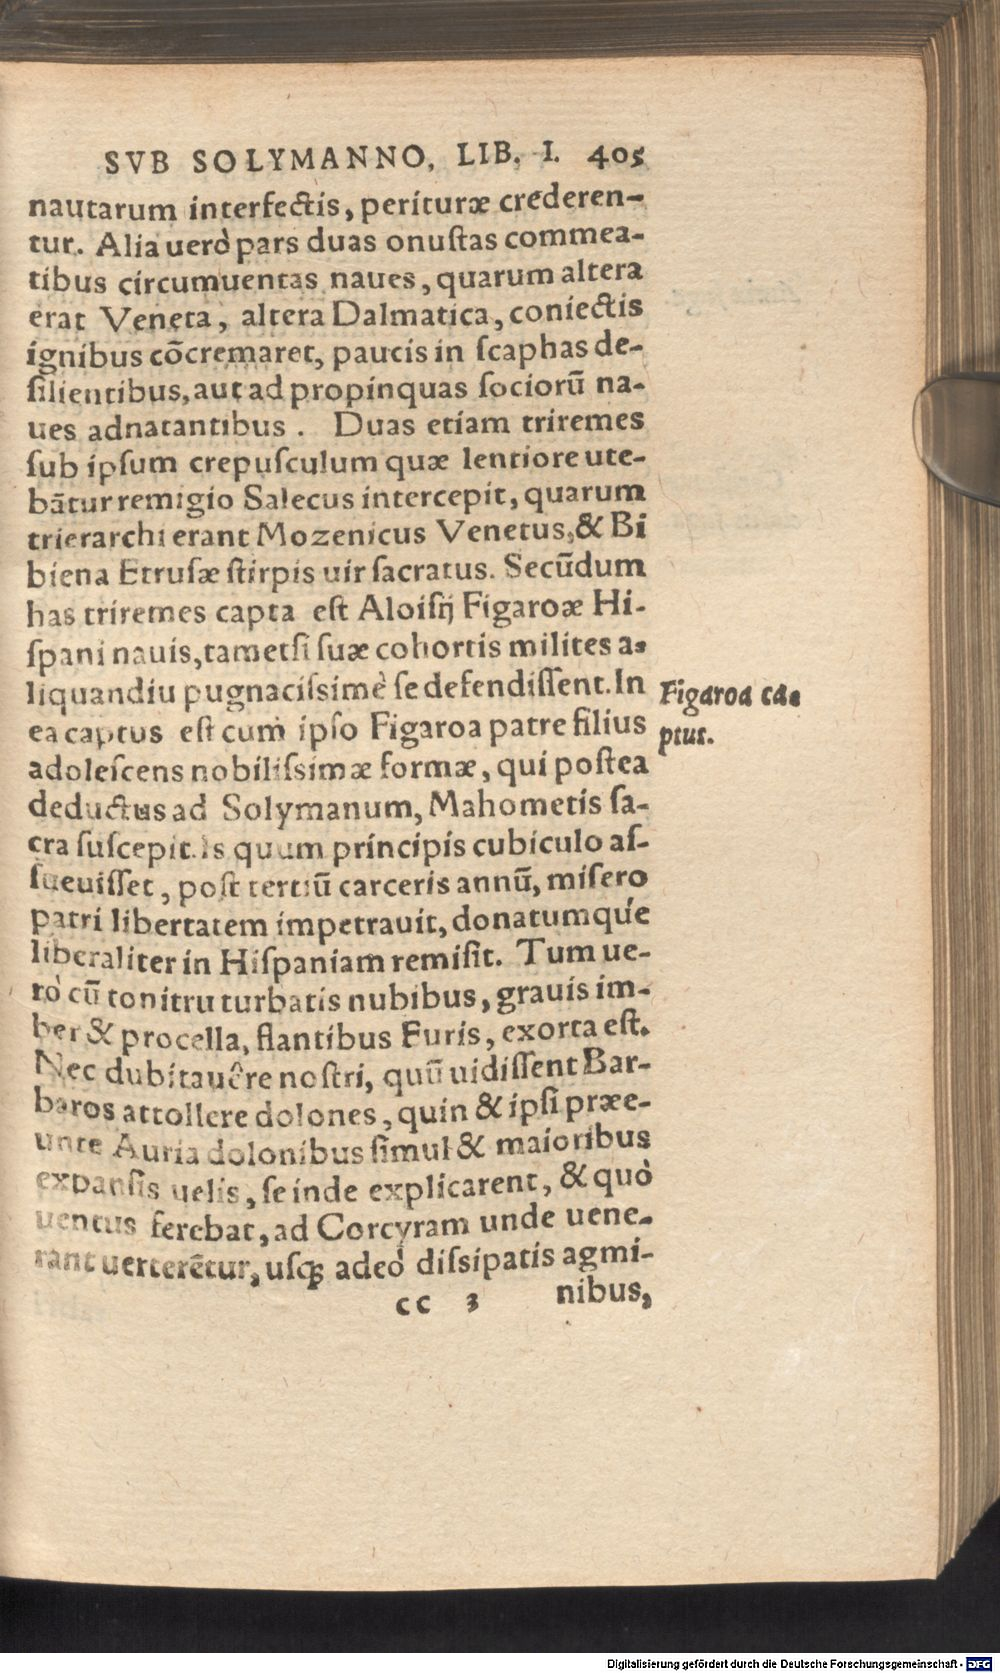 SVB SOLYMANNO, LIB. I. 405
nautarum interfectis, perituræ crederen-
tur. Alia uerò pars duas onuſtas commea-
tibus circumuentas naues, quarum altera
erat Veneta, altera Dalmatica, coniectis
ignibus cōcremaret, paucis in ſcaphas de-
ſilientibus, aut ad propinquas ſociorū na-
ues adnatantibus. Duas etiam triremes
ſub ipſum crepuſculum quæ lentiore ute-
bātur remigio Salecus intercepit, quarum
trierarchi erant Mozenicus Venetus, & Bi
biena Etruſæ ſtirpis uir ſacratus. Secūdum
has triremes capta eſt Aloiſij Figaroæ Hi-
ſpani nauis, tametſi ſuæ cohortis milites a-
liquandiu pugnaciſsimè ſe defendiſſent. In
ea captus eſt cum ipſo Figaroa patre filius
adoleſcens nobiliſsimæ formæ, qui poſtea
deductus ad Solymanum, Mahometis ſa-
cra ſuſcepit. Is quum principis cubiculo aſ-
ſueuiſſet, poſt tertiū carceris annū, miſero
patri libertatem impetrauit, donatumque
liberaliter in Hiſpaniam remiſit. Tum ue-
rò cū tonitru turbatis nubibus, grauis im-
ber & procella, flantibus Euris, exorta eſt.
Nec dubitauêre noſtri, quū uidiſſent Bar-
baros attollere dolones, quin & ipſi præe-
unte Auria dolonibus ſimul & maioribus
expanſis uelis, ſe inde explicarent, & quò
uentus ferebat, ad Corcyram unde uene-
rant uerterētur, uſqꝫ adeò diſsipatis agmi-
cc 3 nibus,
Figaroa ca-
ptus.
Digitalisierung gefördert durch die Deutsche Forschungsgemeinschaft - DFG